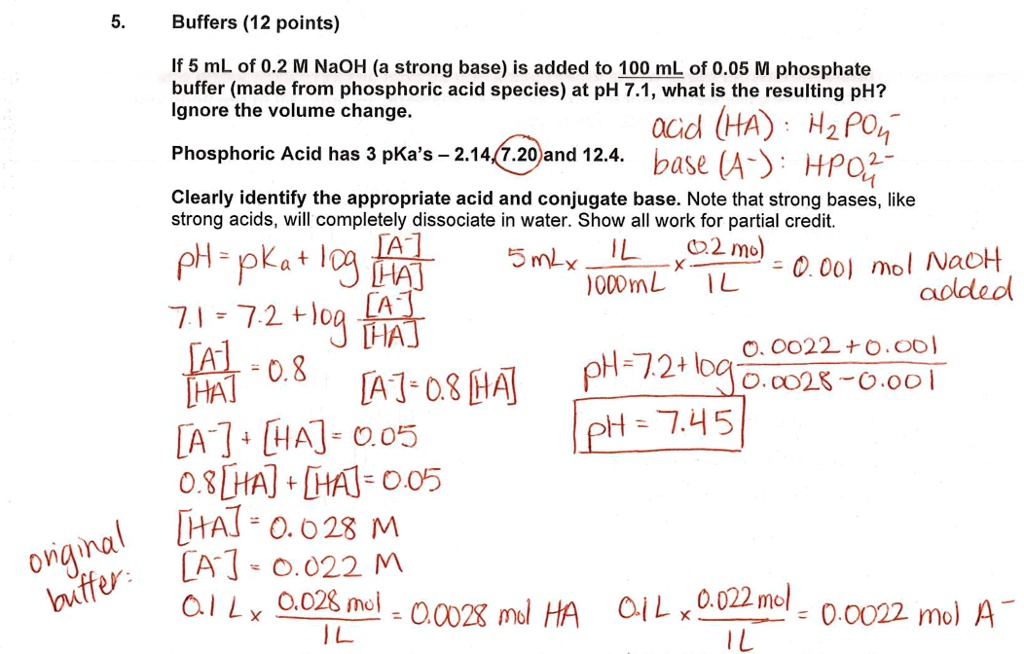 5. Buffers (12 points)
If 5 mL of 0.2 M NaOH (a strong base) is added to 100 mL of 0.05 M phosphate
buffer (made from phosphoric acid species) at pH 7.1, what is the resulting pH?
Ignore the volume change.
acid (HA) : H₂PO₄⁻
Phosphoric Acid has 3 pKa's – 2.14, 7.20 and 12.4.
base (A⁻) : HPO₄²⁻
Clearly identify the appropriate acid and conjugate base. Note that strong bases, like
strong acids, will completely dissociate in water. Show all work for partial credit.
pH = pKa + log [A⁻]/[HA]
5 mL x 1L/1000mL x 0.2 mol/1L = 0.001 mol NaOH
added
7.1 = 7.2 + log [A⁻]/[HA]
[A⁻]/[HA] = 0.8
[A⁻] = 0.8 [HA]
pH = 7.2 + log 0.0022 + 0.001/0.0028 - 0.001
pH = 7.45
[A⁻] + [HA] = 0.05
0.8[HA] + [HA] = 0.05
[HA] = 0.028 M
original
buffer:
[A⁻] = 0.022 M
0.1 L x 0.028 mol/1L = 0.0028 mol HA
0.1 L x 0.022 mol/1L = 0.0022 mol A⁻